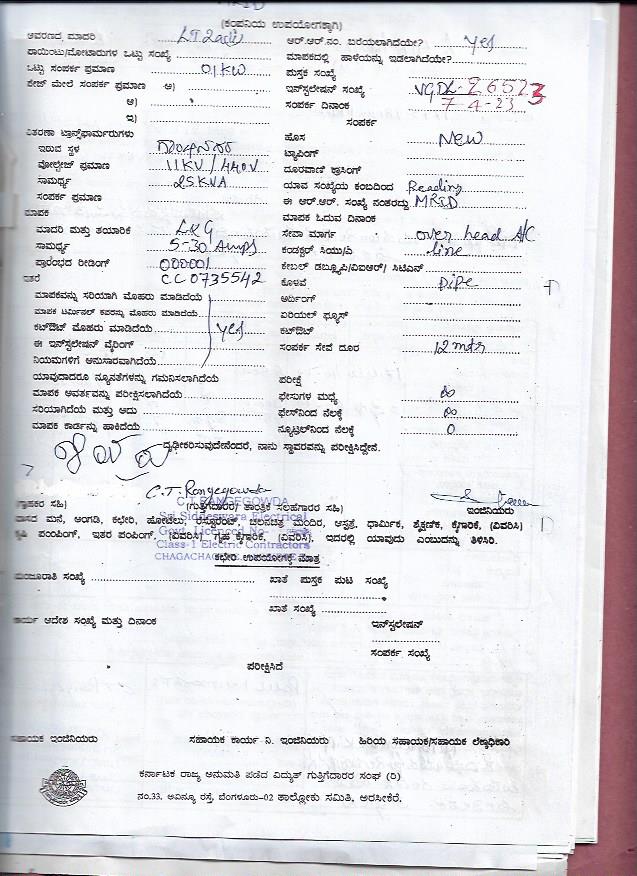 (ಕಂಪನಿಯ ಉಪಯೋಗಕ್ಕಾಗಿ)
ಆವರಣದ ಮಾದರಿ ಆರ್.ಆರ್.ನಂ. ಬರೆಯಲಾಗಿದೆಯೇ? yes
ಪಾಯಿಂಟು/ಮೋಟಾರುಗಳ ಒಟ್ಟು ಸಂಖ್ಯೆ ಮಾಪಕದಲ್ಲಿ ಹಾಳೆಯನ್ನು ಇಡಲಾಗಿದೆಯೇ?
ಒಟ್ಟು ಸಂಪರ್ಕ ಪ್ರಮಾಣ 01KW ಪುಸ್ತಕ ಸಂಖ್ಯೆ
ಪೇಜ್ ಮೇಲೆ ಸಂಪರ್ಕ ಪ್ರಮಾಣ ಅ) ಇನ್‌ಸ್ಟಲೇಷನ್ ಸಂಖ್ಯೆ VGDL-26523
ಆ) ಸಂಪರ್ಕ ದಿನಾಂಕ 7-4-23
ಇ) ಸಂಪರ್ಕ
ವಿತರಣಾ ಟ್ರಾನ್ಸ್‌ಫಾರ್ಮರುಗಳು ಹೊಸ New
ಇರುವ ಸ್ಥಳ ಟ್ಯಾಪಿಂಗ್
ವೋಲ್ಟೇಜ್ ಪ್ರಮಾಣ 11KV / 440V ದೂರವಾಣಿ ಕ್ರಾಸಿಂಗ್
ಸಾಮರ್ಥ್ಯ 25KVA ಯಾವ ಸಂಖ್ಯೆಯ ಕಂಬದಿಂದ Reading
ಸಂಪರ್ಕ ಪ್ರಮಾಣ ಈ ಆರ್.ಆರ್. ಸಂಖ್ಯೆ ನಂತರದ್ದು MRID
ಮಾಪಕ ಮಾಪಕ ಓದುವ ದಿನಾಂಕ
ಮಾದರಿ ಮತ್ತು ತಯಾರಿಕೆ L&G ಸೇವಾ ಮಾರ್ಗ over head A/C
ಸಾಮರ್ಥ್ಯ 5-30 Amps ಕಂಡಕ್ಟರ್ ಸಿಯು/ಎ line
ಪ್ರಾರಂಭದ ರೀಡಿಂಗ್ 000001 ಕೇಬಲ್ ಡಬ್ಲ್ಯೂಪಿ/ವಿಐಆರ್/ ಸಿಟಿಎನ್
ಇತರೆ CC0735542 ಕೊಳವೆ Pipe
ಮಾಪಕವನ್ನು ಸರಿಯಾಗಿ ಮೊಹರು ಮಾಡಿದೆಯೆ ಅರ್ದಿಂಗ್
ಮಾಪಕ ಟರ್ಮಿನಲ್ ಕವರನ್ನು ಮೊಹರು ಮಾಡಿದೆಯೆ ಏರಿಯಲ್ ಫ್ಯೂಸ್
ಕಟ್‌ಔಟ್ ಮೊಹರು ಮಾಡಿದೆಯೆ yes ಕಟ್‌ಔಟ್
ಈ ಇನ್‌ಸ್ಟಲೇಷನ್ ವೈರಿಂಗ್ ಸಂಪರ್ಕ ಸೇವೆ ದೂರ 12 mts
ನಿಯಮಗಳಿಗೆ ಅನುಸಾರವಾಗಿದೆಯೆ
ಯಾವುದಾದರೂ ನ್ಯೂನತೆಗಳನ್ನು ಗಮನಿಸಲಾಗಿದೆಯೆ ಪರೀಕ್ಷೆ
ಮಾಪಕ ಆವರ್ತವನ್ನು ಪರೀಕ್ಷಿಸಲಾಗಿದೆಯೆ ಫೇಸುಗಳ ಮಧ್ಯೆ ∞
ಸರಿಯಾಗಿದೆಯೆ ಮತ್ತು ಅದು ಫೇಸ್‌ನಿಂದ ನೆಲಕ್ಕೆ ∞
ಮಾಪಕ ಕಾರ್ಡನ್ನು ಹಾಕಿದೆಯೆ ನ್ಯೂಟ್ರಲ್‌ನಿಂದ ನೆಲಕ್ಕೆ 0
ದೃಢೀಕರಿಸುವುದೇನೆಂದರೆ, ನಾನು ಸ್ಥಾವರವನ್ನು ಪರೀಕ್ಷಿಸಿದ್ದೇನೆ.
C.T. Rangegowda
C.T.RANGEGOWDA
ಗ್ರಾಹಕರ ಸಹಿ) (ಗುತ್ತಿಗೆದಾರರ/ ತಾಂತ್ರಿಕ ಸಲಹಗಾರರ ಸಹಿ) ಇಂಜಿನಿಯರು
Sri Siddeswara Electrical
ವಾಸದ ಮನೆ, ಅಂಗಡಿ, ಕಛೇರಿ, ಹೋಟೆಲು, ರೆಸ್ಟೊರೆಂಟ್, ಚಲನಚಿತ್ರ ಮಂದಿರ, ಆಸ್ಪತ್ರೆ, ಧಾರ್ಮಿಕ, ಶೈಕ್ಷಣಿಕ, ಕೈಗಾರಿಕೆ, (ವಿವರಿಸಿ)
Govt. Licenced No.
ಕೃಷಿ ಪಂಪಿಂಗ್, ಇತರ ಪಂಪಿಂಗ್, (ವಿವರಿಸಿ) ಗೃಹ ಕೈಗಾರಿಕೆ, (ವಿವರಿಸಿ), ಇದರಲ್ಲಿ ಯಾವುದು ಎಂಬುದನ್ನು ತಿಳಿಸಿರಿ.
Class-1 Electric Contractors
ಕಛೇರಿ ಉಪಯೋಗಕ್ಕೆ ಮಾತ್ರ
ಮಂಜೂರಾತಿ ಸಂಖ್ಯೆ ಖಾತೆ ಪುಸ್ತಕ ಪುಟ ಸಂಖ್ಯೆ
ಖಾತೆ ಸಂಖ್ಯೆ
ಕಾರ್ಯ ಆದೇಶ ಸಂಖ್ಯೆ ಮತ್ತು ದಿನಾಂಕ ಇನ್‌ಸ್ಟಲೇಷನ್
ಸಂಪರ್ಕ ಸಂಖ್ಯೆ
ಪರೀಕ್ಷಿಸಿದೆ
ಸಹಾಯಕ ಇಂಜಿನಿಯರು ಸಹಾಯಕ ಕಾರ್ಯ ನಿ. ಇಂಜಿನಿಯರು ಹಿರಿಯ ಸಹಾಯಕ/ಸಹಾಯಕ ಲೆಕ್ಕಾಧಿಕಾರಿ
ಕರ್ನಾಟಕ ರಾಜ್ಯ ಅನುಮತಿ ಪಡೆದ ವಿದ್ಯುತ್ ಗುತ್ತಿಗೆದಾರರ ಸಂಘ (ರಿ)
ನಂ.33, ಅವಿನ್ಯೂ ರಸ್ತೆ, ಬೆಂಗಳೂರು-02 ತಾಲ್ಲೋಕು ಸಮಿತಿ, ಅರಸೀಕೆರೆ.